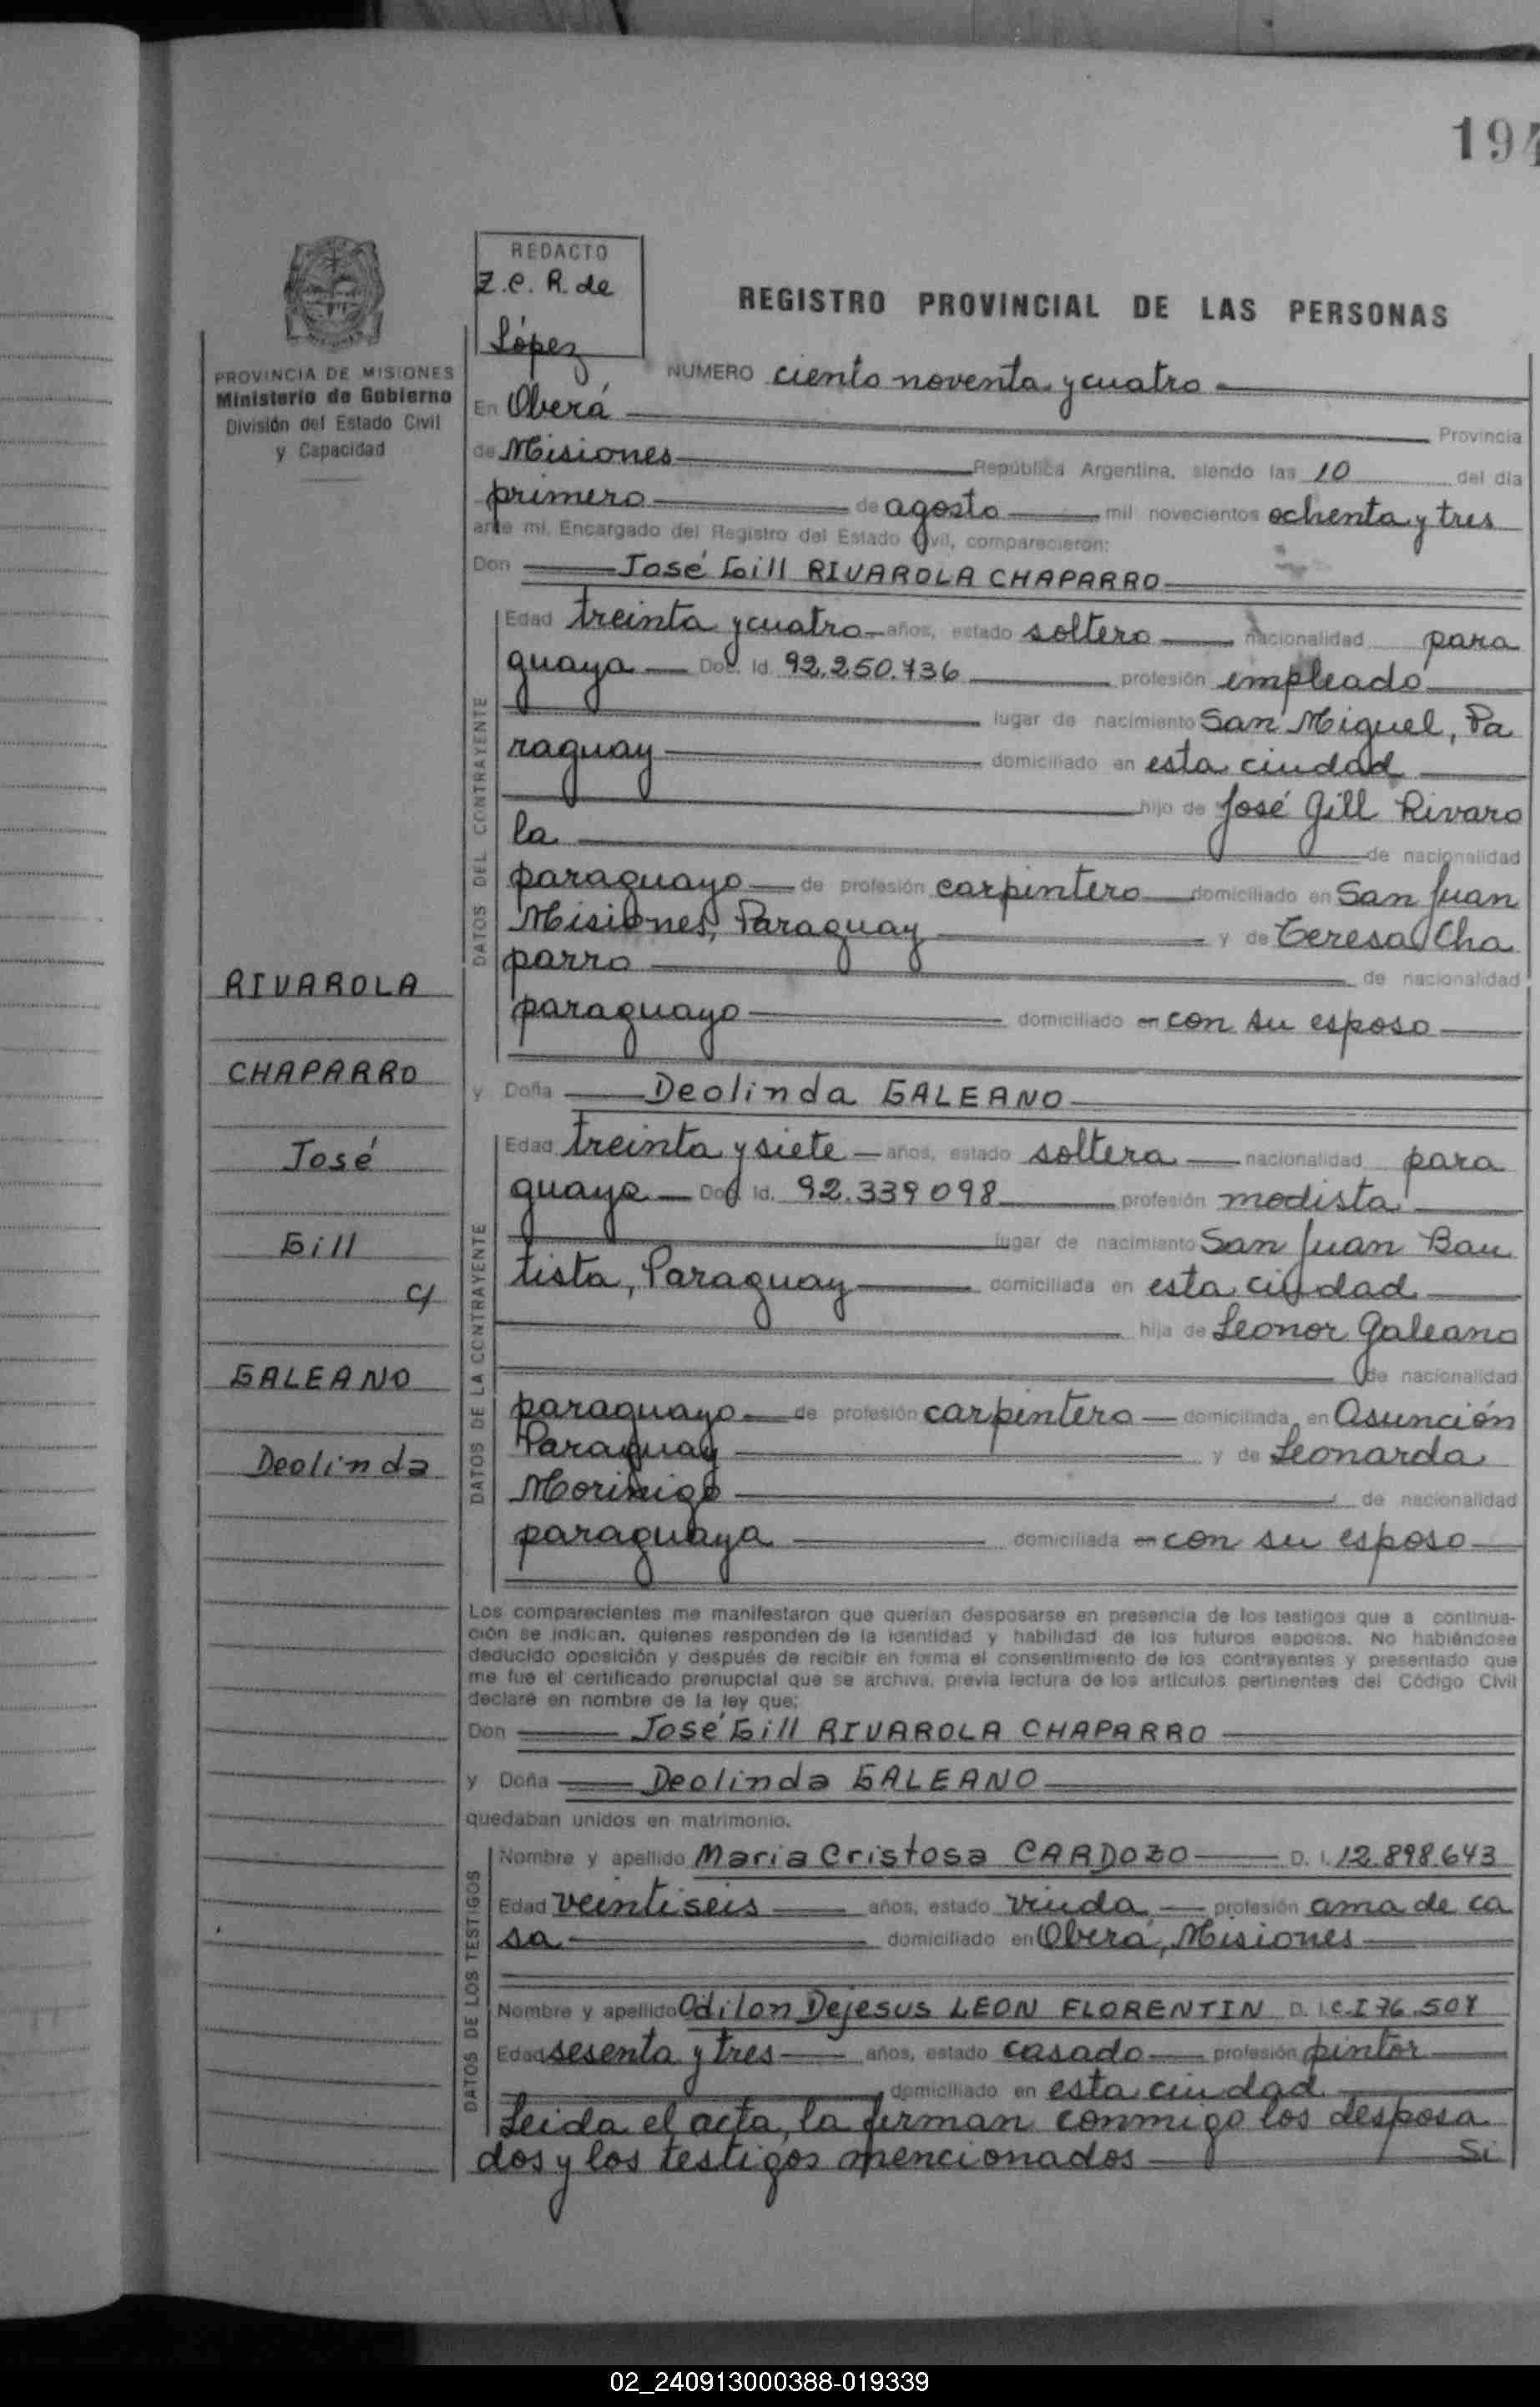 194
REDACTO
Z.C.R. de
López
REGISTRO PROVINCIAL DE LAS PERSONAS
PROVINCIA DE MISIONES
Ministerio de Gobierno
División del Estado Civil
y Capacidad
NUMERO ciento noventa y cuatro
En Oberá Provincia
de Misiones República Argentina, siendo las 10 del día
primero de agosto mil novecientos ochenta y tres
ante mi, Encargado del Registro del Estado Civil, comparecieron:
Don José Gill RIVAROLA CHAPARRO
DATOS DEL CONTRAYENTE
Edad treinta y cuatro años, estado soltero nacionalidad para
guaya Doc. Id. 92.250.736 profesión empleado
lugar de nacimiento San Miguel, Pa
raguay domiciliado en esta ciudad
hijo de José Gill Rivaro
la de nacionalidad
paraguayo de profesión carpintero domiciliado en San Juan
Misiones, Paraguay y de Teresa Cha
parro de nacionalidad
paraguayo domiciliado en con su esposo
RIVAROLA
CHAPARRO
José
Gill
c/
GALEANO
Deolinda
y Doña Deolinda GALEANO
DATOS DE LA CONTRAYENTE
Edad treinta y siete años, estado soltera nacionalidad para
guaya Doc. Id. 92.339098 profesión modista
lugar de nacimiento San Juan Bau
tista, Paraguay domiciliada en esta ciudad
hija de Leonor Galeano
de nacionalidad
paraguayo de profesión carpintero domiciliada en Asunción
Paraguay y de Leonarda
Morinigo de nacionalidad
paraguaya domiciliada en con su esposo
Los comparecientes me manifestaron que querían desposarse en presencia de los testigos que a continua-
ción se indican, quienes responden de la identidad y habilidad de los futuros esposos. No habiéndose
deducido oposición y después de recibir en forma el consentimiento de los contrayentes y presentado que
me fue el certificado prenupcial que se archiva, previa lectura de los artículos pertinentes del Código Civil
declaré en nombre de la ley que:
Don José Gill RIVAROLA CHAPARRO
y Doña Deolinda GALEANO
quedaban unidos en matrimonio.
DATOS DE LOS TESTIGOS
Nombre y apellido Maria Cristosa CARDOZO D. I. 12.898.643
Edad veintiseis años, estado viuda profesión ama de ca
sa domiciliado en Oberá, Misiones
Nombre y apellido Odilon Dejesus LEON FLORENTIN D. I. C.I 76.507
Edad sesenta y tres años, estado casado profesión pintor
domiciliado en esta ciudad
Leida el acta, la firman conmigo los desposa
dos y los testigos mencionados Si
02_240913000388-019339